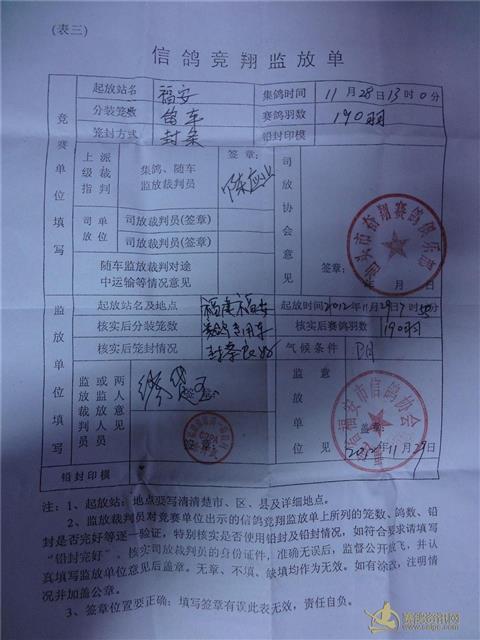 (表三)
信鸽竞翔监放单
竞赛单位填写
起放站名 福安 集鸽时间 11月28日13时0分
分装笼数 鸽车 赛鸽羽数 190羽
笼封方式 封条 铅封印模
上级指派裁判 集鸽、随车监放裁判员 签章: 司放协会意见
司放单位 司放裁判员(签章)
司放裁判员(签章) 签章:
随车监放裁判对途中运输等情况意见 年 月 日
监放单位填写
起放站名及地点 福建福安 起放时间 2012年11月29日7时
核实后分装笼数 赛鸽专用车 核实后赛鸽羽数 190羽
核实后笼封情况 封条良好 气候条件 晴
监放裁判员或两人监放人员意见 签章: 监放意见
2012年11月29日
铅封印模
注:1、起放站:地点要写清清楚市、区、县及详细地点。
2、监放裁判员对竞赛单位出示的信鸽竞翔监放单上所列的笼数、鸽数、铅
封是否完好等逐一验证,特别核实是否使用铅封及铅封情况,如符合要求请填写
“铅封完好”、核实司放裁判员的身份证件,准确无误后,监督公开放飞,并认
真填写监放单位意见后盖章。无章、不填、缺填均作为无效。如有涂改,注明情
况并加盖公章。
3、签章位置要正确:填写签章有误此表无效,责任自负。
赛鸽资讯网
www.saige.com